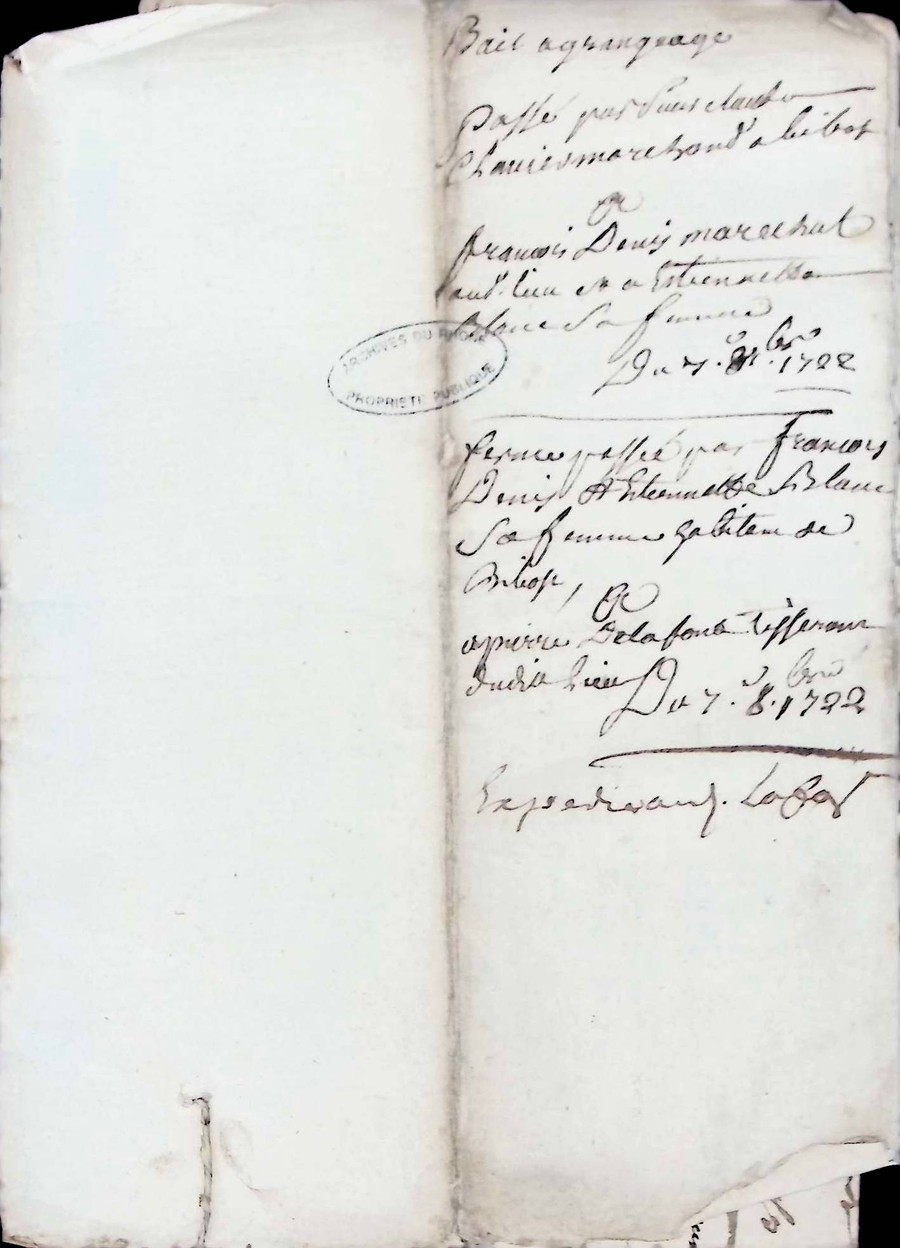 Bail a grangeage
Passé par Sieur claude
Chavier marchand a bibost
A
francois Denis marechal
aud. lieu et a Estiennette
Blanc Sa femme
Du 7.e 8.bre 1722
ARCHIVES DU RHONE
PROPRIETE PUBLIQUE
ferme passée par francois
Denis et Estiennette Blanc
Sa femme habitans de
Bibost,
A
a pierre Delafont tisserant
dudit lieu
Du 7.e 8.bre 1722
Expedié